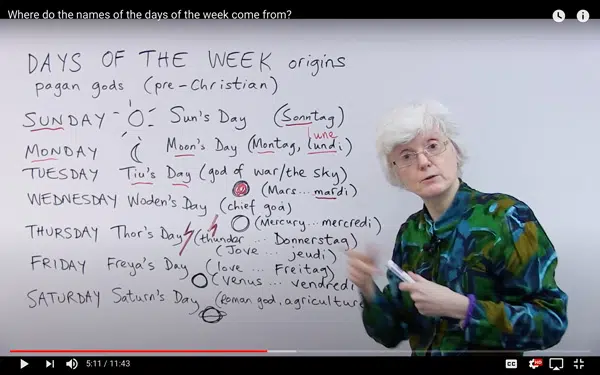 Where do the names of the days of the week come from?
DAYS OF THE WEEK origins
pagan gods (pre-Christian)
SUNDAY Sun's Day (Sonntag)
lune
MONDAY Moon's Day (Montag, lundi)
TUESDAY Tiu's Day (god of war/the sky)
(Mars...mardi)
WEDNESDAY Woden's Day (chief god)
(Mercury...mercredi)
THURSDAY Thor's Day (thunder ... Donnerstag)
(Jove ... jeudi)
FRIDAY Freya's Day (love ... Freitag)
(Venus ... vendredi
SATURDAY Saturn's Day (Roman god, agriculture
5:11 / 11:43
CC
HD